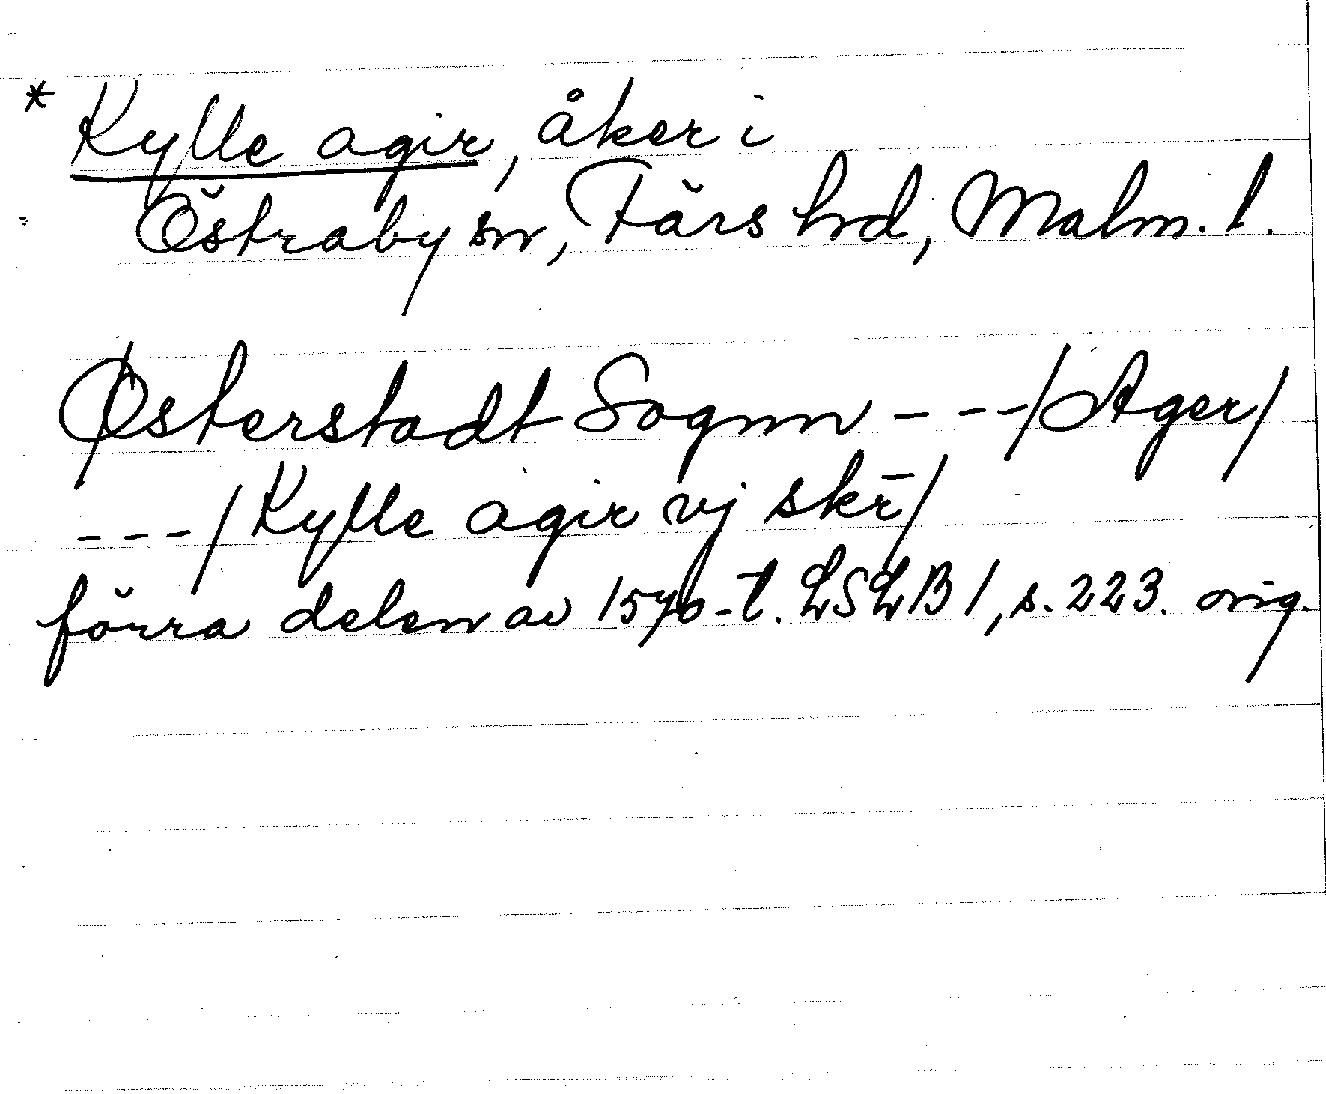 * Kylle agir, åker i
Östraby sn, Färs hd, Malm. l.
Østerstadt Sognn - - -/Ager/
- - -/Kylle agir vj skr̄/
förra delen av 1570-t. LSLB 1, s. 223. orig.